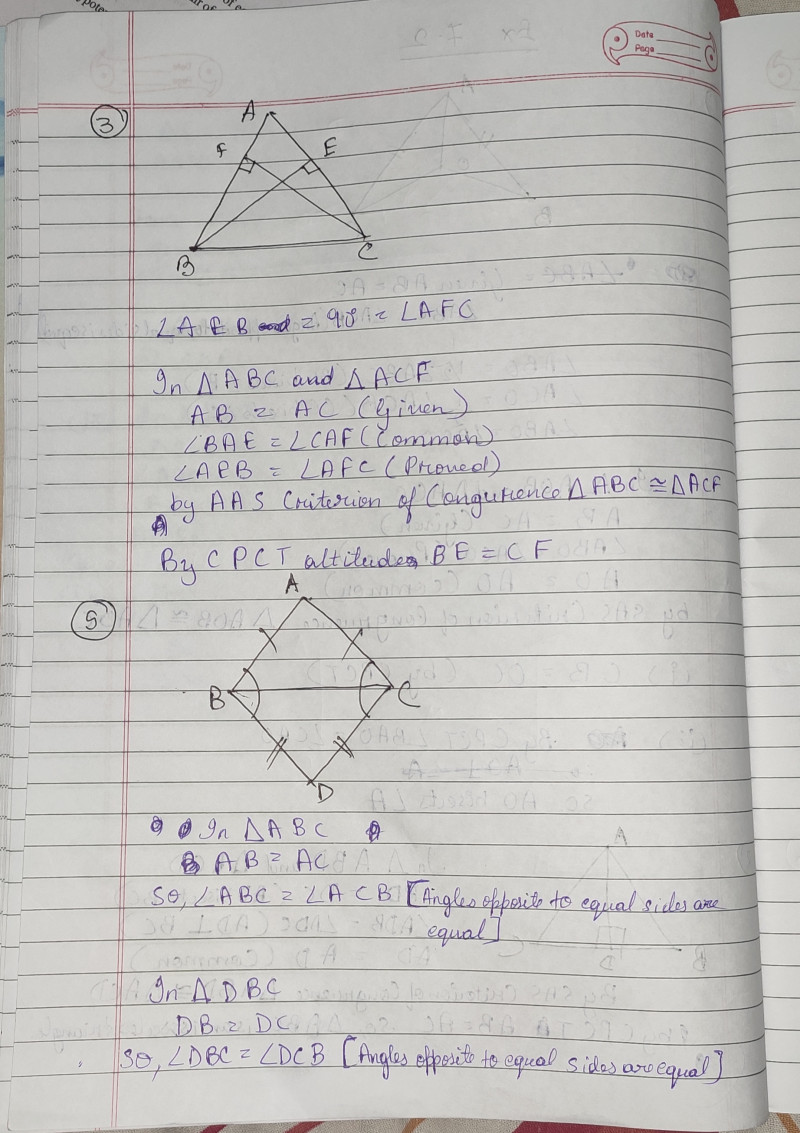 Date
Page
3
A
F
E
B
C
∠AEB = 90 = ∠AFC
In △ABC and △ACF
AB = AC (Given)
∠BAE = ∠CAF (Common)
∠AEB = ∠AFC (Proved)
by AAS Criterion of Congurence △ABC ≅ △ACF
By CPCT altitudes BE = CF
5
A
B
C
D
In △ABC
AB = AC
SO, ∠ABC = ∠ACB [Angles opposite to equal sides are
equal]
In △DBC
DB = DC
SO, ∠DBC = ∠DCB [Angles opposite to equal sides are equal]